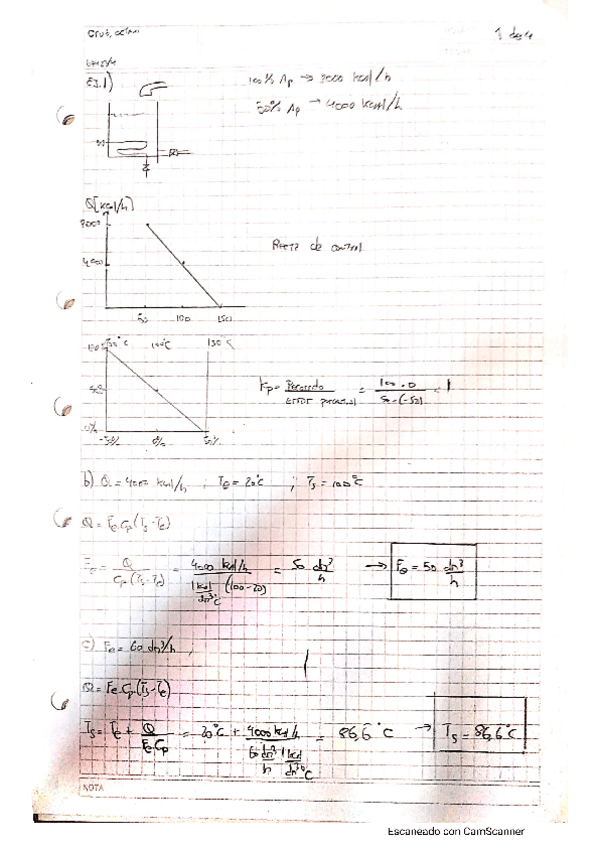 1 de 4
100% Ap → 8000 kcal/h
50% Ap → 4000 kcal/h
Q[kcal/h]
4000
50 100 150
Recta de control
100°C 150°C
50%
0%
-50% 0% 50%
Kp = Recorrido / Error porcentual = 100-0 / 50-(-50) = 1
b) Q = 4000 kcal/h ; Te = 20°C ; Ts = 100°C
Q = Fe.Cp(Ts-Te)
Fe = Q / Cp(Ts-Te) = 4000 kcal/h / 1 kcal/dm³°C (100-20) = 50 dm³/h → Fe = 50 dm³/h
c) Fe = 60 dm³/h ;
Q = Fe.Cp(Ts-Te)
Ts = Te + Q / Fe.Cp = 20°C + 4000 kcal/h / 60 dm³/h 1 kcal/dm³°C = 86,6°C → Ts = 86,6°C
NOTA
Escaneado con CamScanner